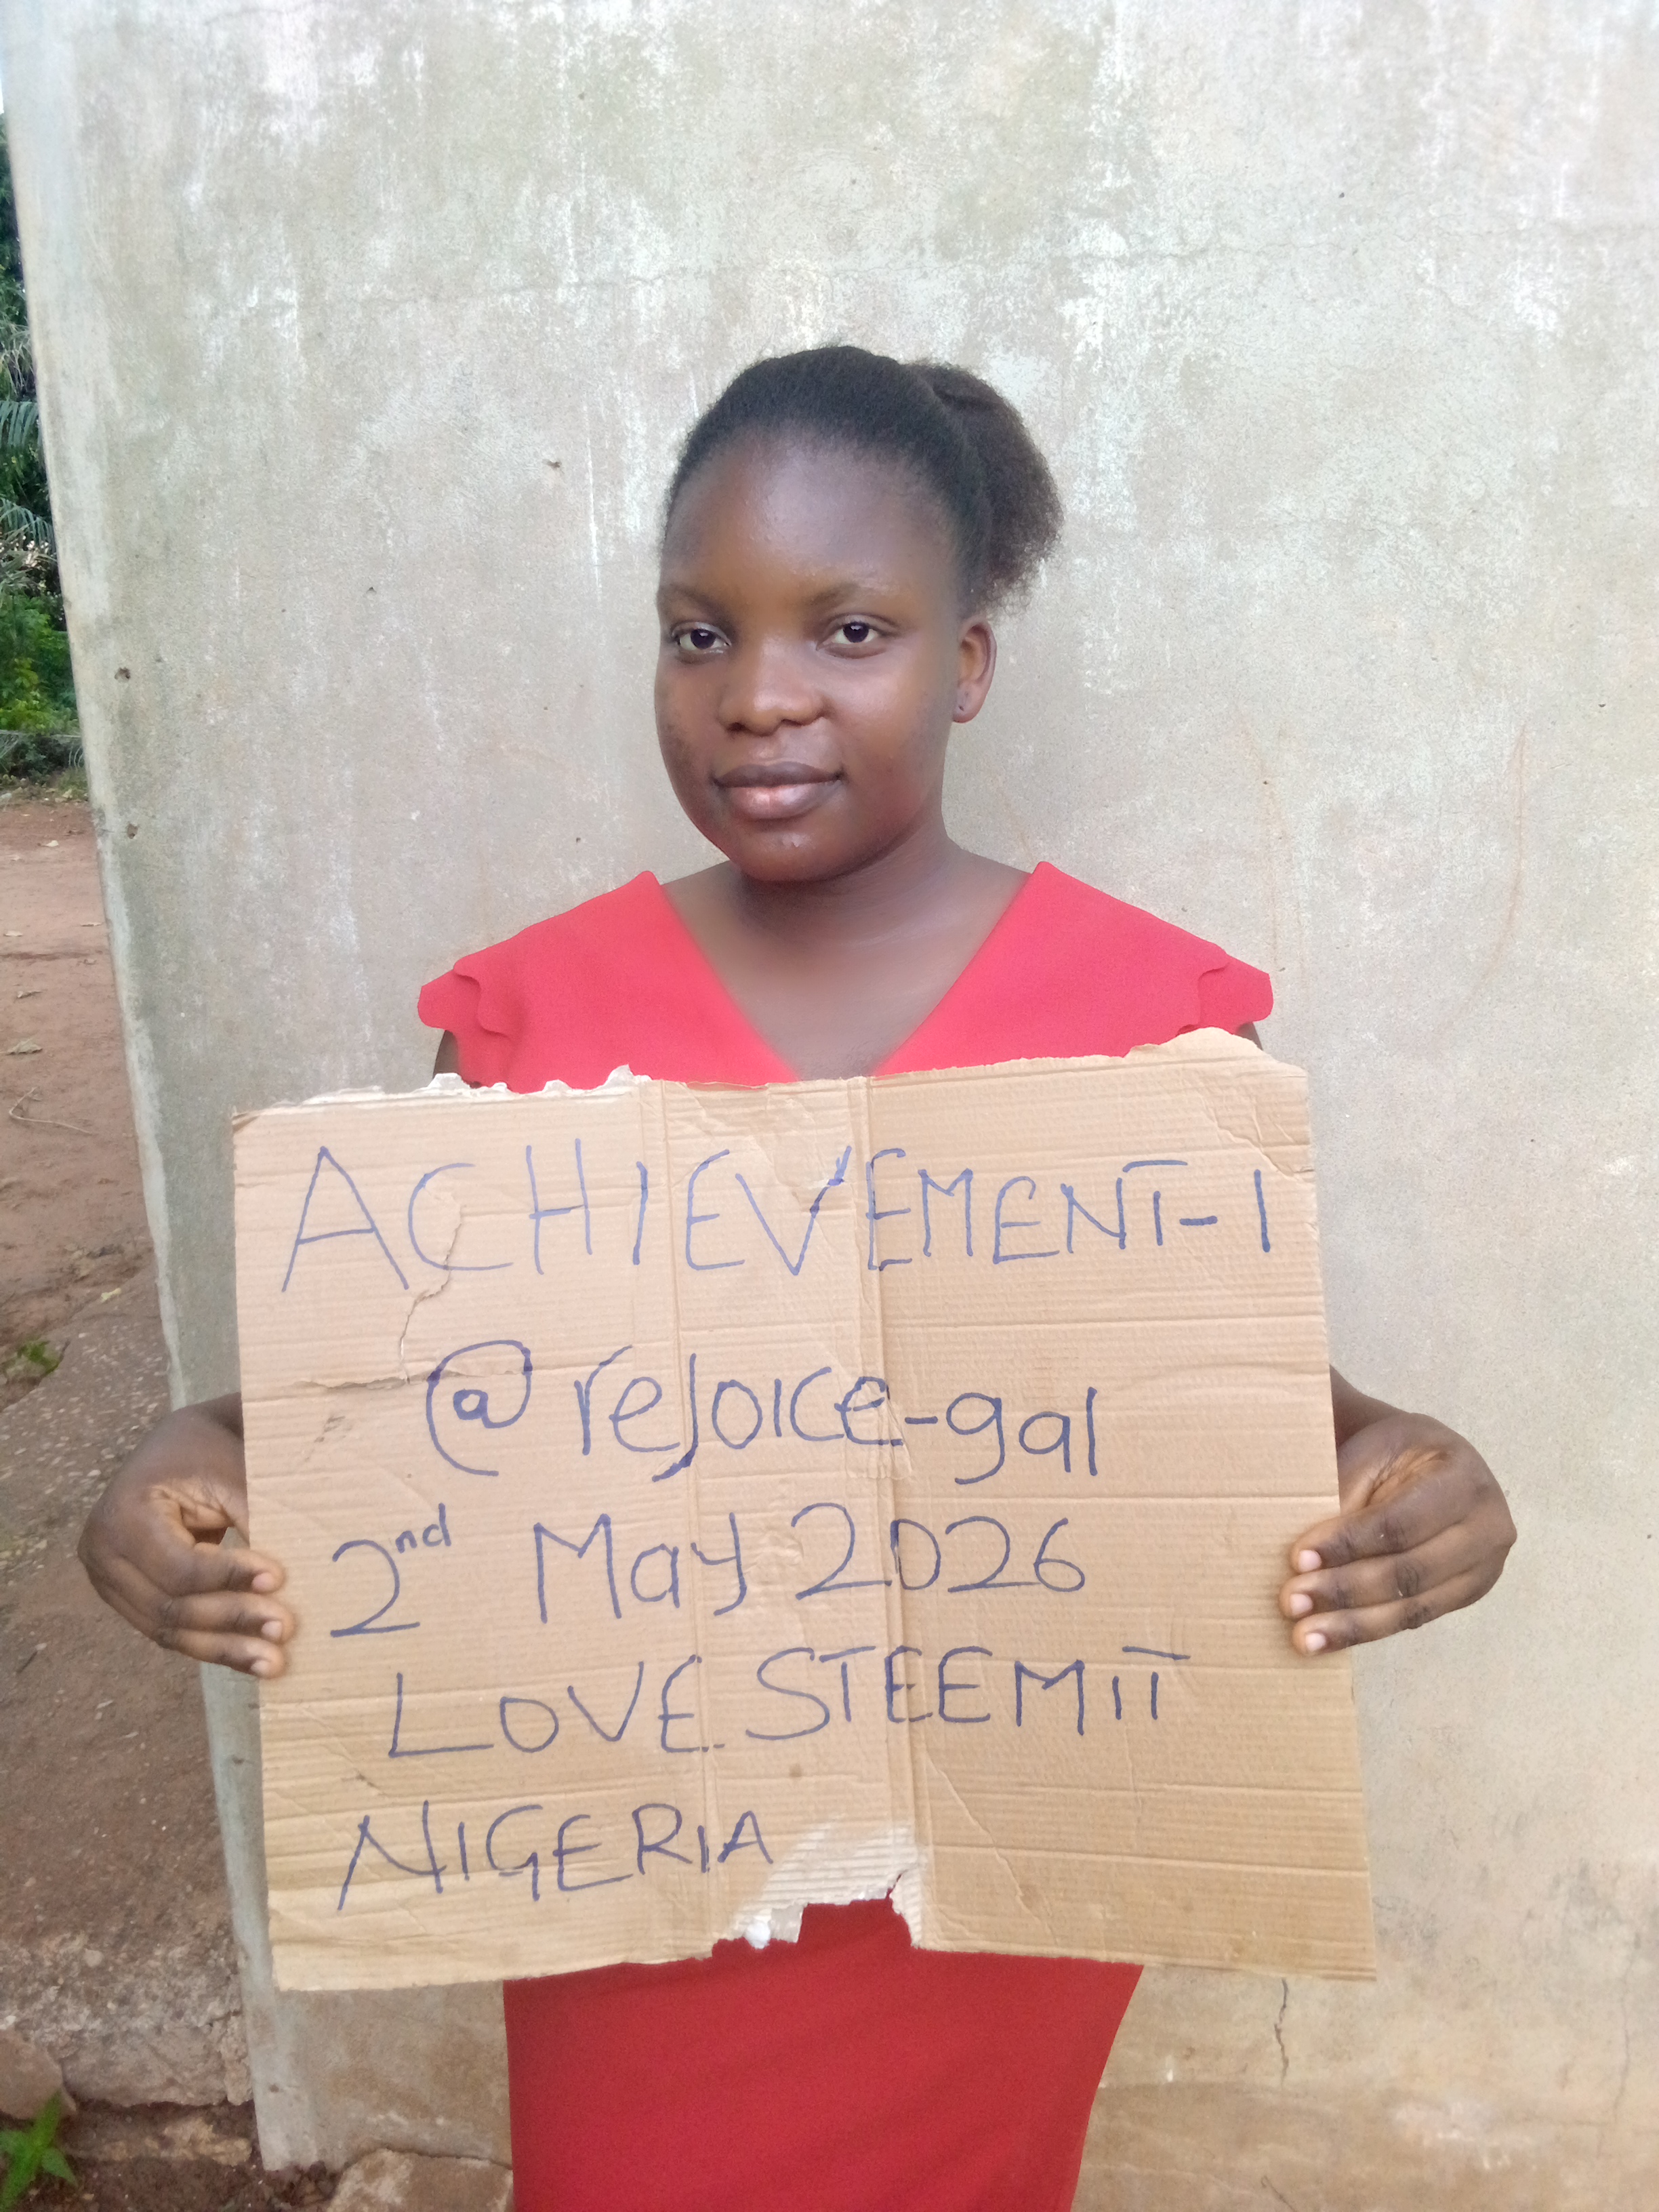 ACHIEVEMENT-1
@rejoice-gal
2nd May 2026
LOVE STEEMIT
NIGERIA